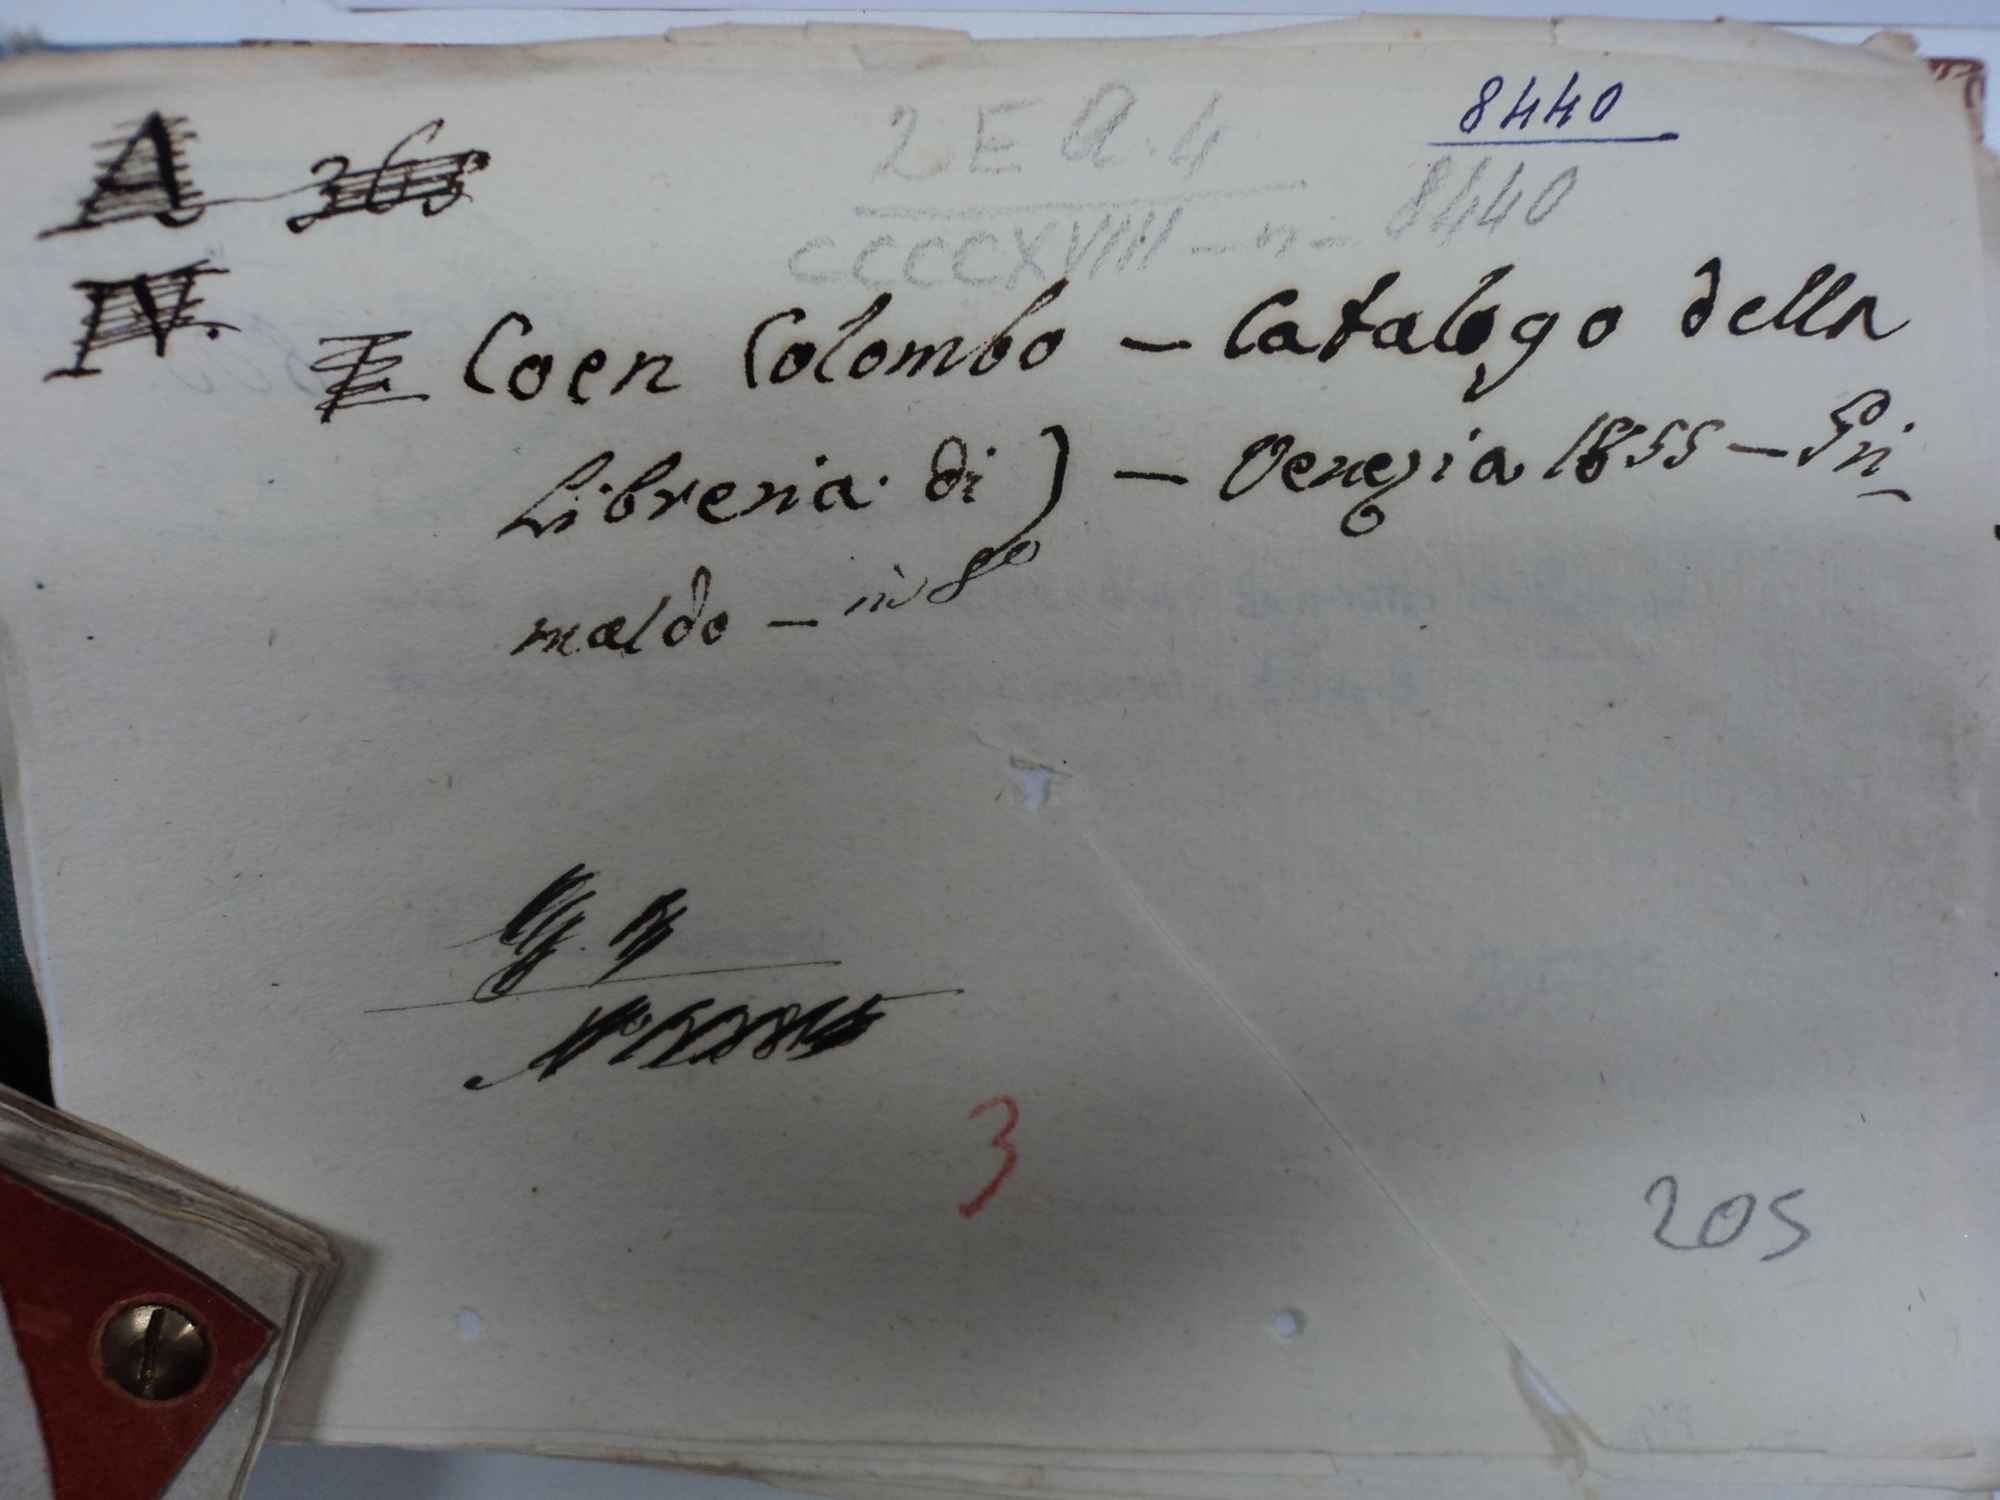 8440
2 E A. 4
8440
CCCCXVIII - n -
A 363
IV.
Coen Colombo - Catalogo della
Libreria di ) - Venezia 1855 - Gri_
maldo - in 8º
3
205